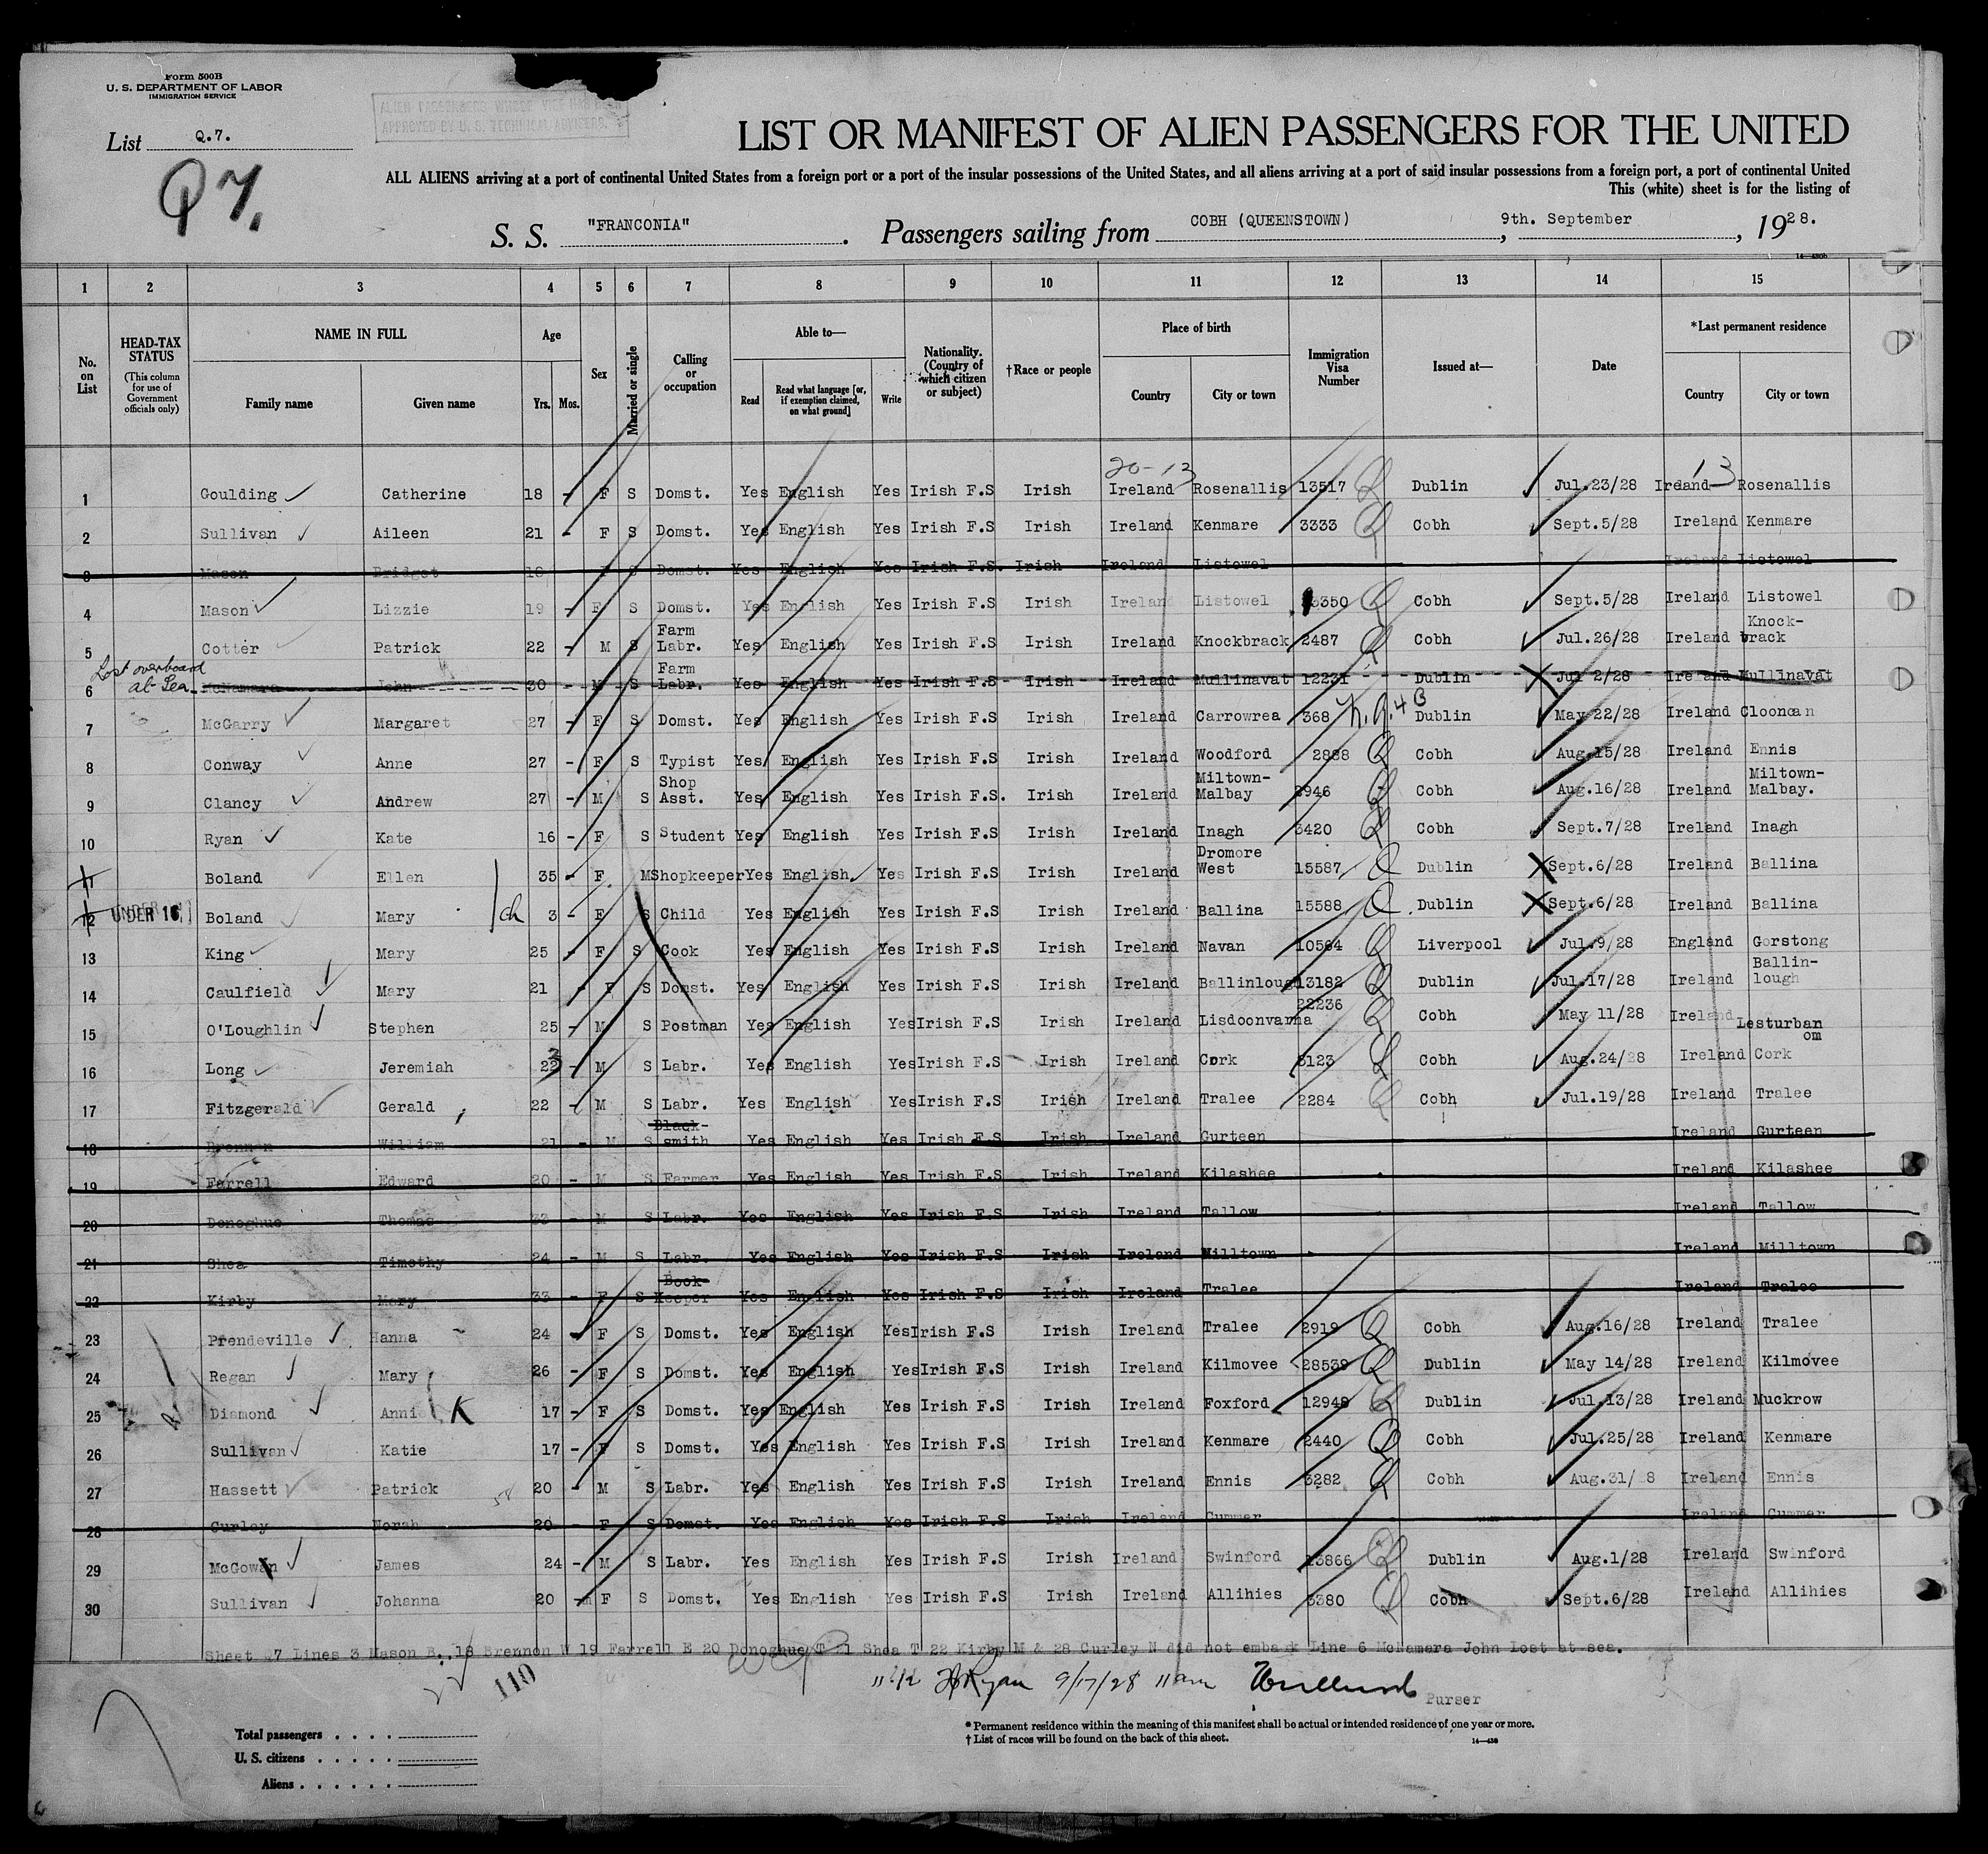 Form 500B
U. S. DEPARTMENT OF LABOR
IMMIGRATION SERVICE
List Q.7.
Q7.
ALIEN PASSENGERS WHOSE
APPROVED BY U. S. TECHNICAL ADVISERS.
LIST OR MANIFEST OF ALIEN PASSENGERS FOR THE UNITED
ALL ALIENS arriving at a port of continental United States from a foreign port or a port of the insular possessions of the United States, and all aliens arriving at a port of said insular possessions from a foreign port, a port of continental United
This (white) sheet is for the listing of
S. S. "FRANCONIA". Passengers sailing from COBH (QUEENSTOWN), 9th. September, 1928.
14—430b
1 2 3 4 5 6 7 8 9 10 11 12 13 14 15
No. on List
HEAD-TAX STATUS
(This column for use of Government officials only)
NAME IN FULL
Family name Given name
Age
Yrs. Mos.
Sex
Married or single
Calling or occupation
Able to—
Read
Read what language [or, if exemption claimed, on what ground]
Write
Nationality. (Country of which citizen or subject)
†Race or people
Place of birth
Country City or town
Immigration Visa Number
Issued at—
Date
*Last permanent residence
Country City or town
20-13
13
1 Goulding Catherine 18 - F S Domst. Yes English Yes Irish F.S Irish Ireland Rosenallis 13517 Q Dublin Jul.23/28 Ireland Rosenallis
2 Sullivan Aileen 21 - F S Domst. Yes English Yes Irish F.S Irish Ireland Kenmare 3333 Q Cobh Sept.5/28 Ireland Kenmare
3 Mason Bridget 18 F S Domst. Yes English Yes Irish F.S. Irish Ireland Listowel Ireland Listowel
4 Mason Lizzie 19 - F S Domst. Yes English Yes Irish F.S Irish Ireland Listowel 3350 Q Cobh Sept.5/28 Ireland Listowel
5 Cotter Patrick 22 - M S Farm Labr. Yes English Yes Irish F.S Irish Ireland Knockbrack 2487 Q Cobh Jul.26/28 Ireland Knock-brack
Lost overboard at Sea
6 McNamara John 30 - M S Farm Labr. Yes English Yes Irish F.S Irish Ireland Mullinavat 12231 Dublin Jul 2/28 Ireland Mullinavat
7 McGarry Margaret 27 - F S Domst. Yes English Yes Irish F.S Irish Ireland Carrowrea 368 N.Q.4B Dublin May 22/28 Ireland Clooncan
8 Conway Anne 27 - F S Typist Yes English Yes Irish F.S Irish Ireland Woodford 2888 Q Cobh Aug.15/28 Ireland Ennis
9 Clancy Andrew 27 - M S Shop Asst. Yes English Yes Irish F.S. Irish Ireland Miltown-Malbay 2946 Q Cobh Aug.16/28 Ireland Miltown-Malbay.
10 Ryan Kate 16 - F S Student Yes English Yes Irish F.S Irish Ireland Inagh 3420 Q Cobh Sept.7/28 Ireland Inagh
11 Boland Ellen 35 - F M Shopkeeper Yes English Yes Irish F.S Irish Ireland Dromore West 15587 Q Dublin Sept.6/28 Ireland Ballina
12 UNDER 16 Boland Mary ch 3 - F S Child Yes English Yes Irish F.S Irish Ireland Ballina 15588 Q Dublin Sept.6/28 Ireland Ballina
13 King Mary 25 - F S Cook Yes English Yes Irish F.S Irish Ireland Navan 10564 Q Liverpool Jul.9/28 England Gorstong
14 Caulfield Mary 21 - F S Domst. Yes English Yes Irish F.S Irish Ireland Ballinlough 13182 Q Dublin Jul.17/28 Ireland Ballin-lough
15 O'Loughlin Stephen 25 - M S Postman Yes English Yes Irish F.S Irish Ireland Lisdoonvarna 22236 Q Cobh May 11/28 Ireland Lesturban om
16 Long Jeremiah 23 - M S Labr. Yes English Yes Irish F.S Irish Ireland Cork 3123 Q Cobh Aug.24/28 Ireland Cork
17 Fitzgerald Gerald 22 - M S Labr. Yes English Yes Irish F.S Irish Ireland Tralee 2284 Q Cobh Jul.19/28 Ireland Tralee
18 Brennan William 21 - M S Black-smith Yes English Yes Irish F.S Irish Ireland Gurteen Ireland Gurteen
19 Farrell Edward 20 - M S Farmer Yes English Yes Irish F.S Irish Ireland Kilashee Ireland Kilashee
20 Donoghue Thomas 33 - M S Labr. Yes English Yes Irish F.S Irish Ireland Tallow Ireland Tallow
21 Shea Timothy 24 - M S Labr. Yes English Yes Irish F.S Irish Ireland Milltown Ireland Milltown
22 Kirby Mary 33 - F S Book Keeper Yes English Yes Irish F.S Irish Ireland Tralee Ireland Tralee
23 Prendeville Hanna 24 - F S Domst. Yes English Yes Irish F.S Irish Ireland Tralee 2919 Q Cobh Aug.16/28 Ireland Tralee
24 Regan Mary 26 - F S Domst. Yes English Yes Irish F.S Irish Ireland Kilmovee 28539 Q Dublin May 14/28 Ireland Kilmovee
25 Diamond Anni K 17 - F S Domst. Yes English Yes Irish F.S Irish Ireland Foxford 12948 Q Dublin Jul.13/28 Ireland Muckrow
26 Sullivan Katie 17 - F S Domst. Yes English Yes Irish F.S Irish Ireland Kenmare 2440 Q Cobh Jul.25/28 Ireland Kenmare
27 Hassett Patrick 20 - M S Labr. Yes English Yes Irish F.S Irish Ireland Ennis 3282 Q Cobh Aug.31/ 8 Ireland Ennis
28 Curley Norah 20 - F S Domst. Yes English Yes Irish F.S Irish Ireland Cummer Ireland Cummer
29 McGowan James 24 - M S Labr. Yes English Yes Irish F.S Irish Ireland Swinford 13866 Q Dublin Aug.1/28 Ireland Swinford
30 Sullivan Johanna 20 - F S Domst. Yes English Yes Irish F.S Irish Ireland Allihies 3380 Q Cobh Sept.6/28 Ireland Allihies
Sheet Q7 Lines 3 Mason B., 18 Brennon W 19 Farrell E 20 Donoghue T 21 Shea T 22 Kirby M & 28 Curley N did not embark Line 6 McNamara John Lost at sea.
22 110 Ryan 9/17/28 11am Purser
Total passengers
U. S. citizens
Aliens
* Permanent residence within the meaning of this manifest shall be actual or intended residence of one year or more.
† List of races will be found on the back of this sheet.
14—430